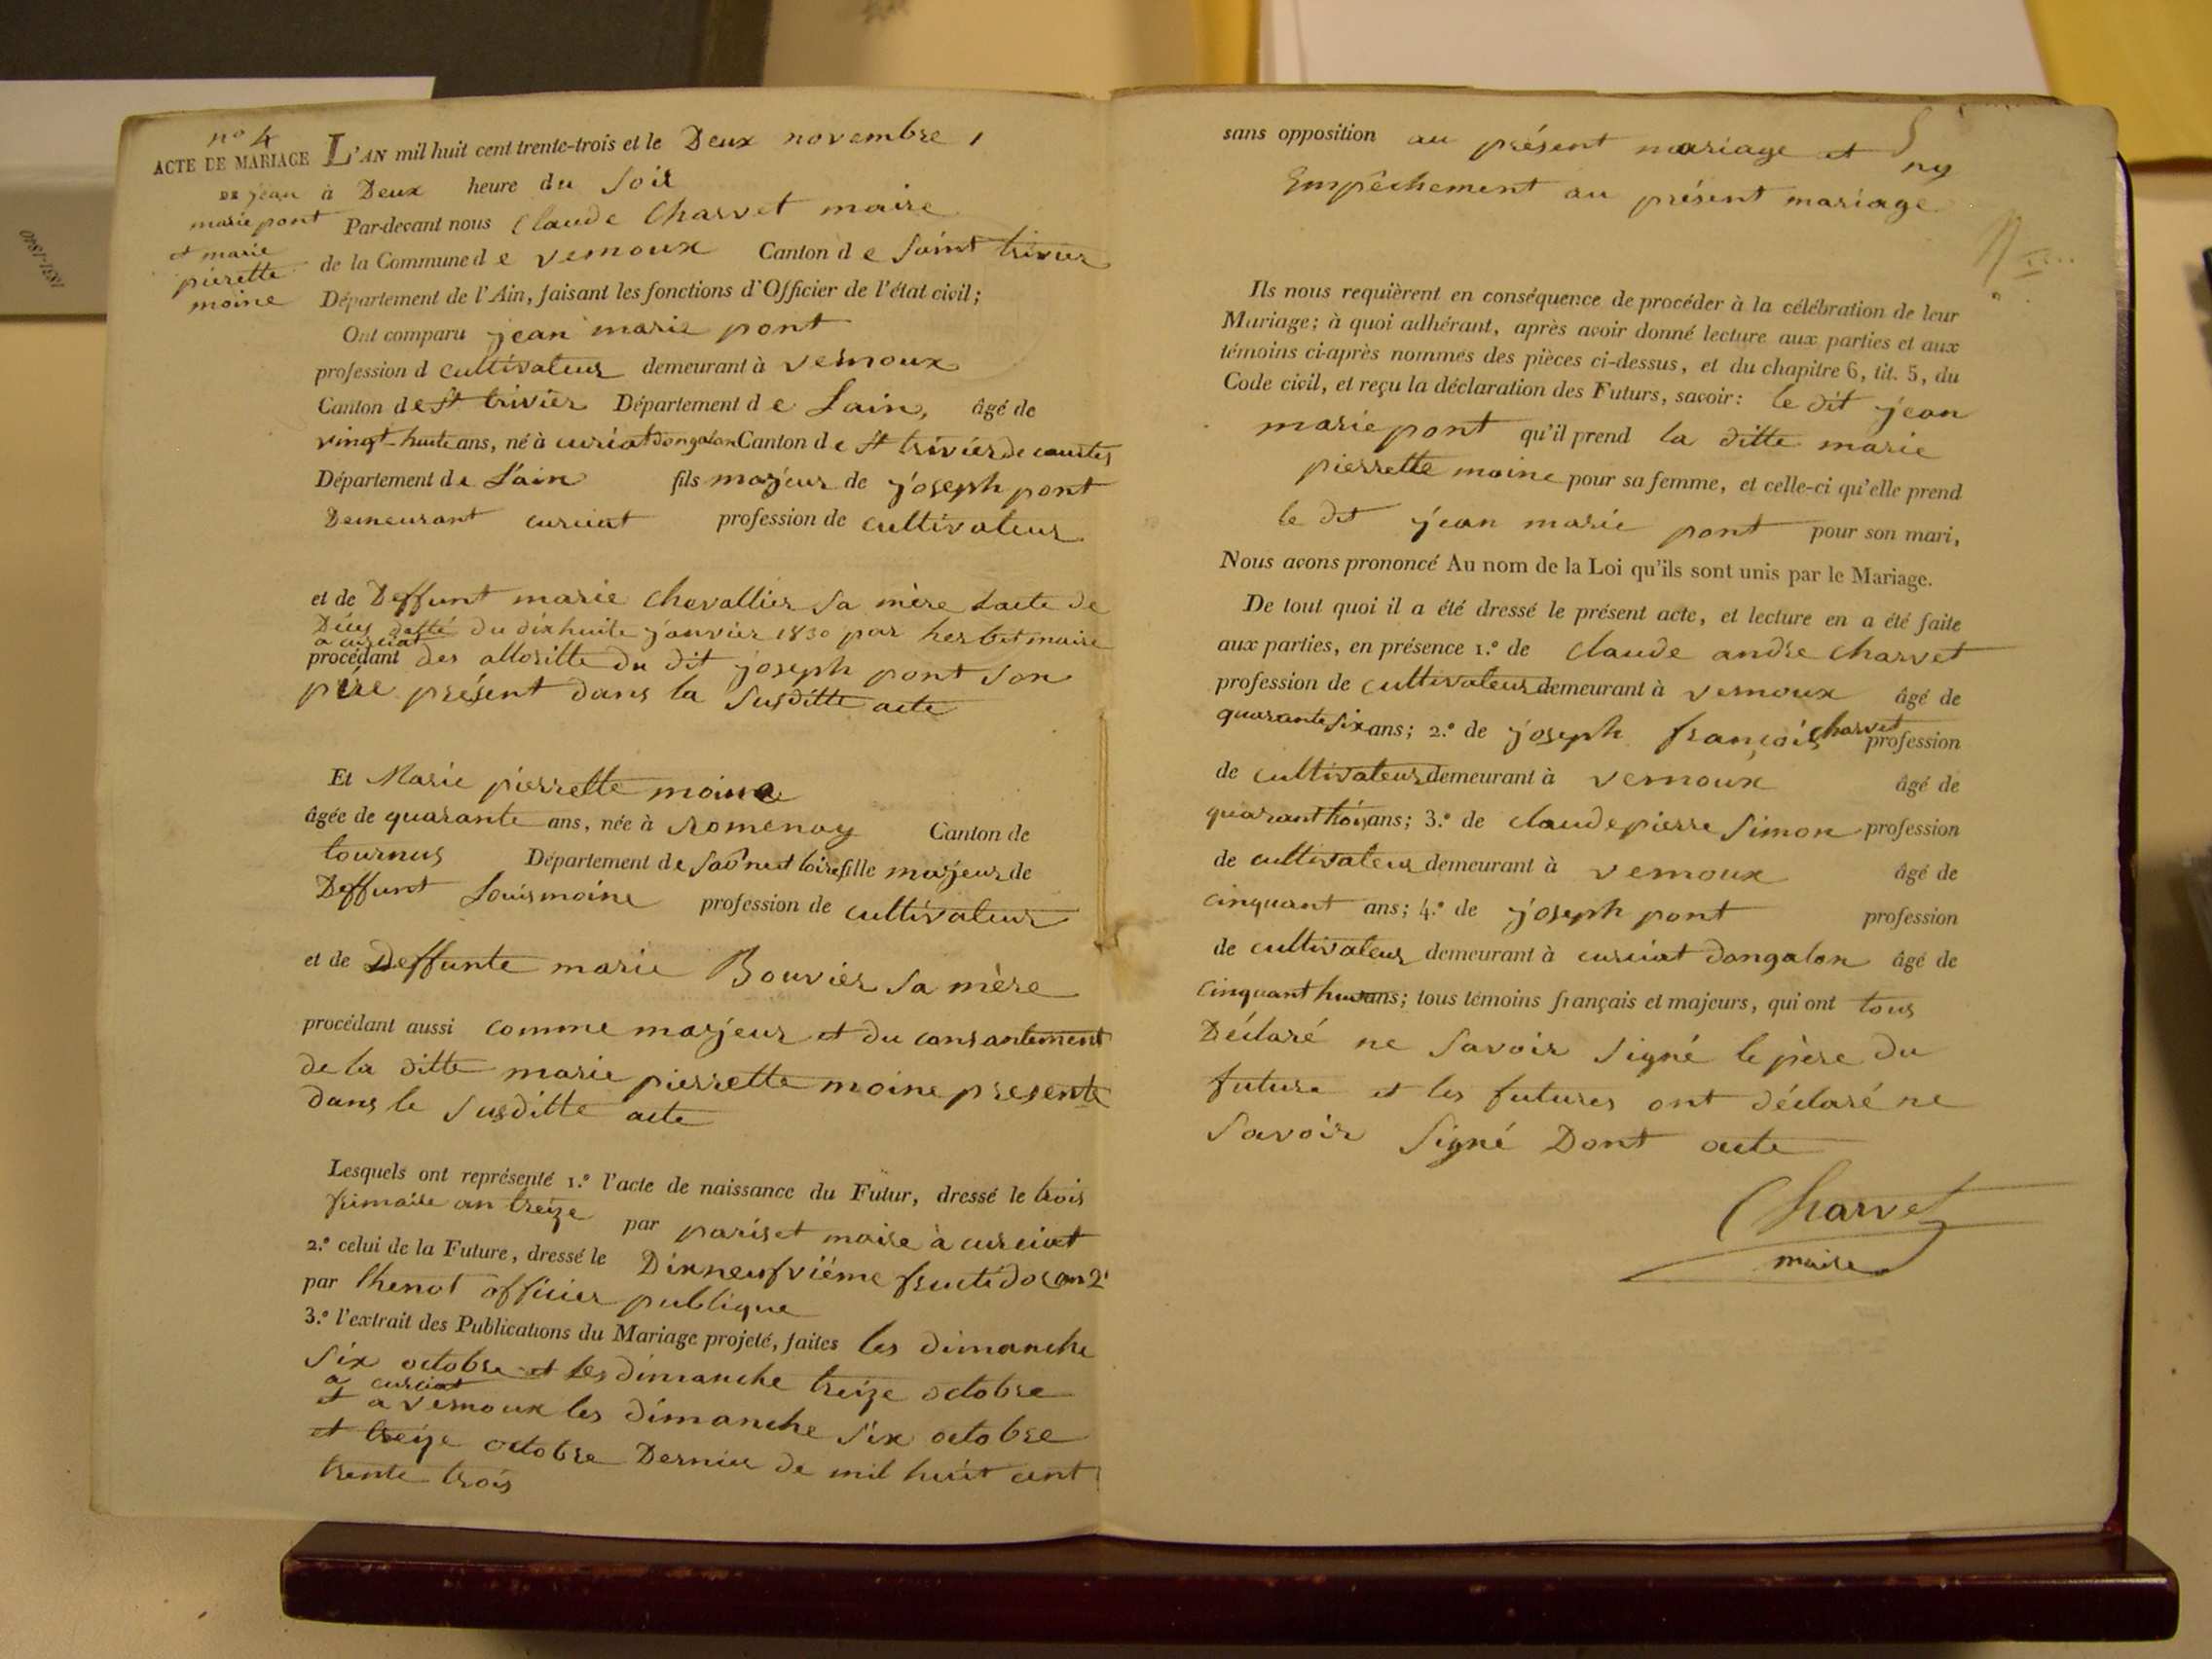 n° 4
ACTE DE MARIAGE
DE jean
marie pont
et marie
pierette
moine
L'AN mil huit cent trente-trois et le Deux novembre
à Deux heure du Soir
Par-devant nous Claude Charvet maire
de la Commune de vernoux Canton de Saint trivier
Département de l'Ain, faisant les fonctions d'Officier de l'état civil;
Ont comparu jean marie pont
profession d cultivateur demeurant à vernoux
Canton de St trivier Département de Lain, âgé de
vingt-huite ans, né à curciat dongalon Canton de St trivier de courtes
Département de L'ain fils majeur de joseph pont
Demeurant curciat profession de cultivateur
et de Deffunt marie Chevallier Sa mère Lacte de
Décès datté du dixhuite janvier 1830 par herbet maire
a curciat
procédant des allositte du dit joseph pont Son
père présent dans la Susditte acte
Et Marie pierrette moine
âgée de quarante ans, née à Romenay Canton de
tournus Département de Saône et loire fille majeur de
Deffunt Louis moine profession de cultivateur
et de Deffunte marie Bouvier Sa mère
procédant aussi comme majeur et du consantement
de la ditte marie pierrette moine presente
dans le Susditte acte
Lesquels ont représenté 1.° l'acte de naissance du Futur, dressé le trois
frimaire an treize par pariset maire à curciat
2.° celui de la Future, dressé le Dixneufvième fructidor an 2
par thenot officier publique
3.° l'extrait des Publications du Mariage projeté, faites les dimanche
Six octobre et les dimanche treize octobre
a curciat
et a vernoux les dimanche Six octobre
et treize octobre Dernier de mil huit cent
trente trois
sans opposition au présent mariage et ny
Empêchement au présent mariage
Ils nous requièrent en conséquence de procéder à la célébration de leur
Mariage; à quoi adhérant, après avoir donné lecture aux parties et aux
témoins ci-après nommés des pièces ci-dessus, et du chapitre 6, tit. 5, du
Code civil, et reçu la déclaration des Futurs, savoir: le dit jean
marie pont qu'il prend la ditte marie
pierrette moine pour sa femme, et celle-ci qu'elle prend
le dit jean marie pont pour son mari,
Nous avons prononcé Au nom de la Loi qu'ils sont unis par le Mariage.
De tout quoi il a été dressé le présent acte, et lecture en a été faite
aux parties, en présence 1.° de claude andre charvet
profession de cultivateur demeurant à vernoux âgé de
quarante six ans; 2.° de joseph françois charvet profession
de cultivateur demeurant à vernoux âgé de
quarant trois ans; 3.° de claude pierre Simon profession
de cultivateur demeurant à vernoux âgé de
cinquant ans; 4.° de joseph pont profession
de cultivateur demeurant à curciat dongalon âgé de
cinquant huit ans; tous témoins français et majeurs, qui ont tous
Déclaré ne Savoir Signé le père du
future et les futures ont déclaré ne
Savoir Signé Dont acte
Charvet
maire
1881-1840